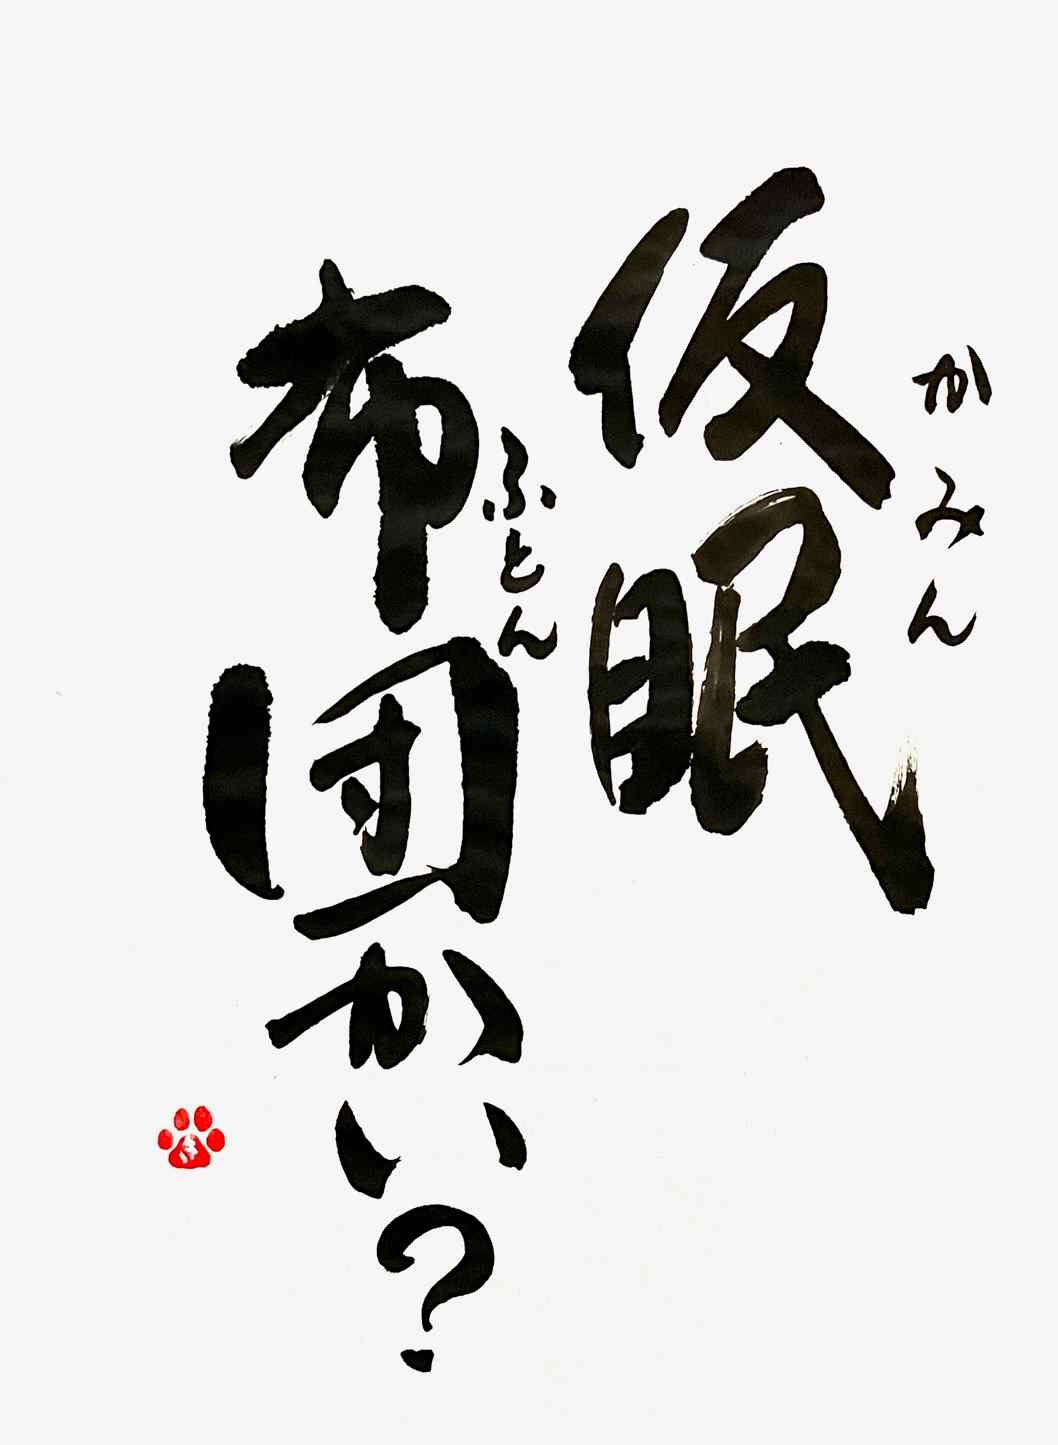 かみん
仮眠
ふとん
布団かい?